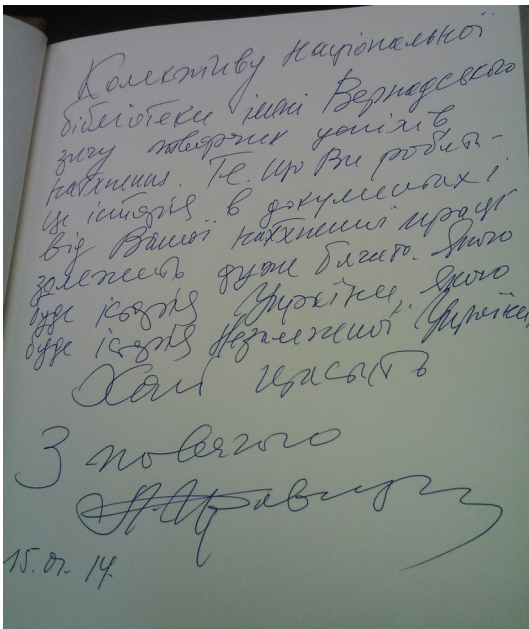 Колективу Національної
бібліотеки імені Вернадського
зичу творчих успіхів
натхнення. Те що Ви робите -
це історія в документах і
від Вашої натхненної праці
залежить дуже багато. Якою
буде історія України, якою
буде історія Незалежної України.
Хай щастить
З повагою
15.01.14.